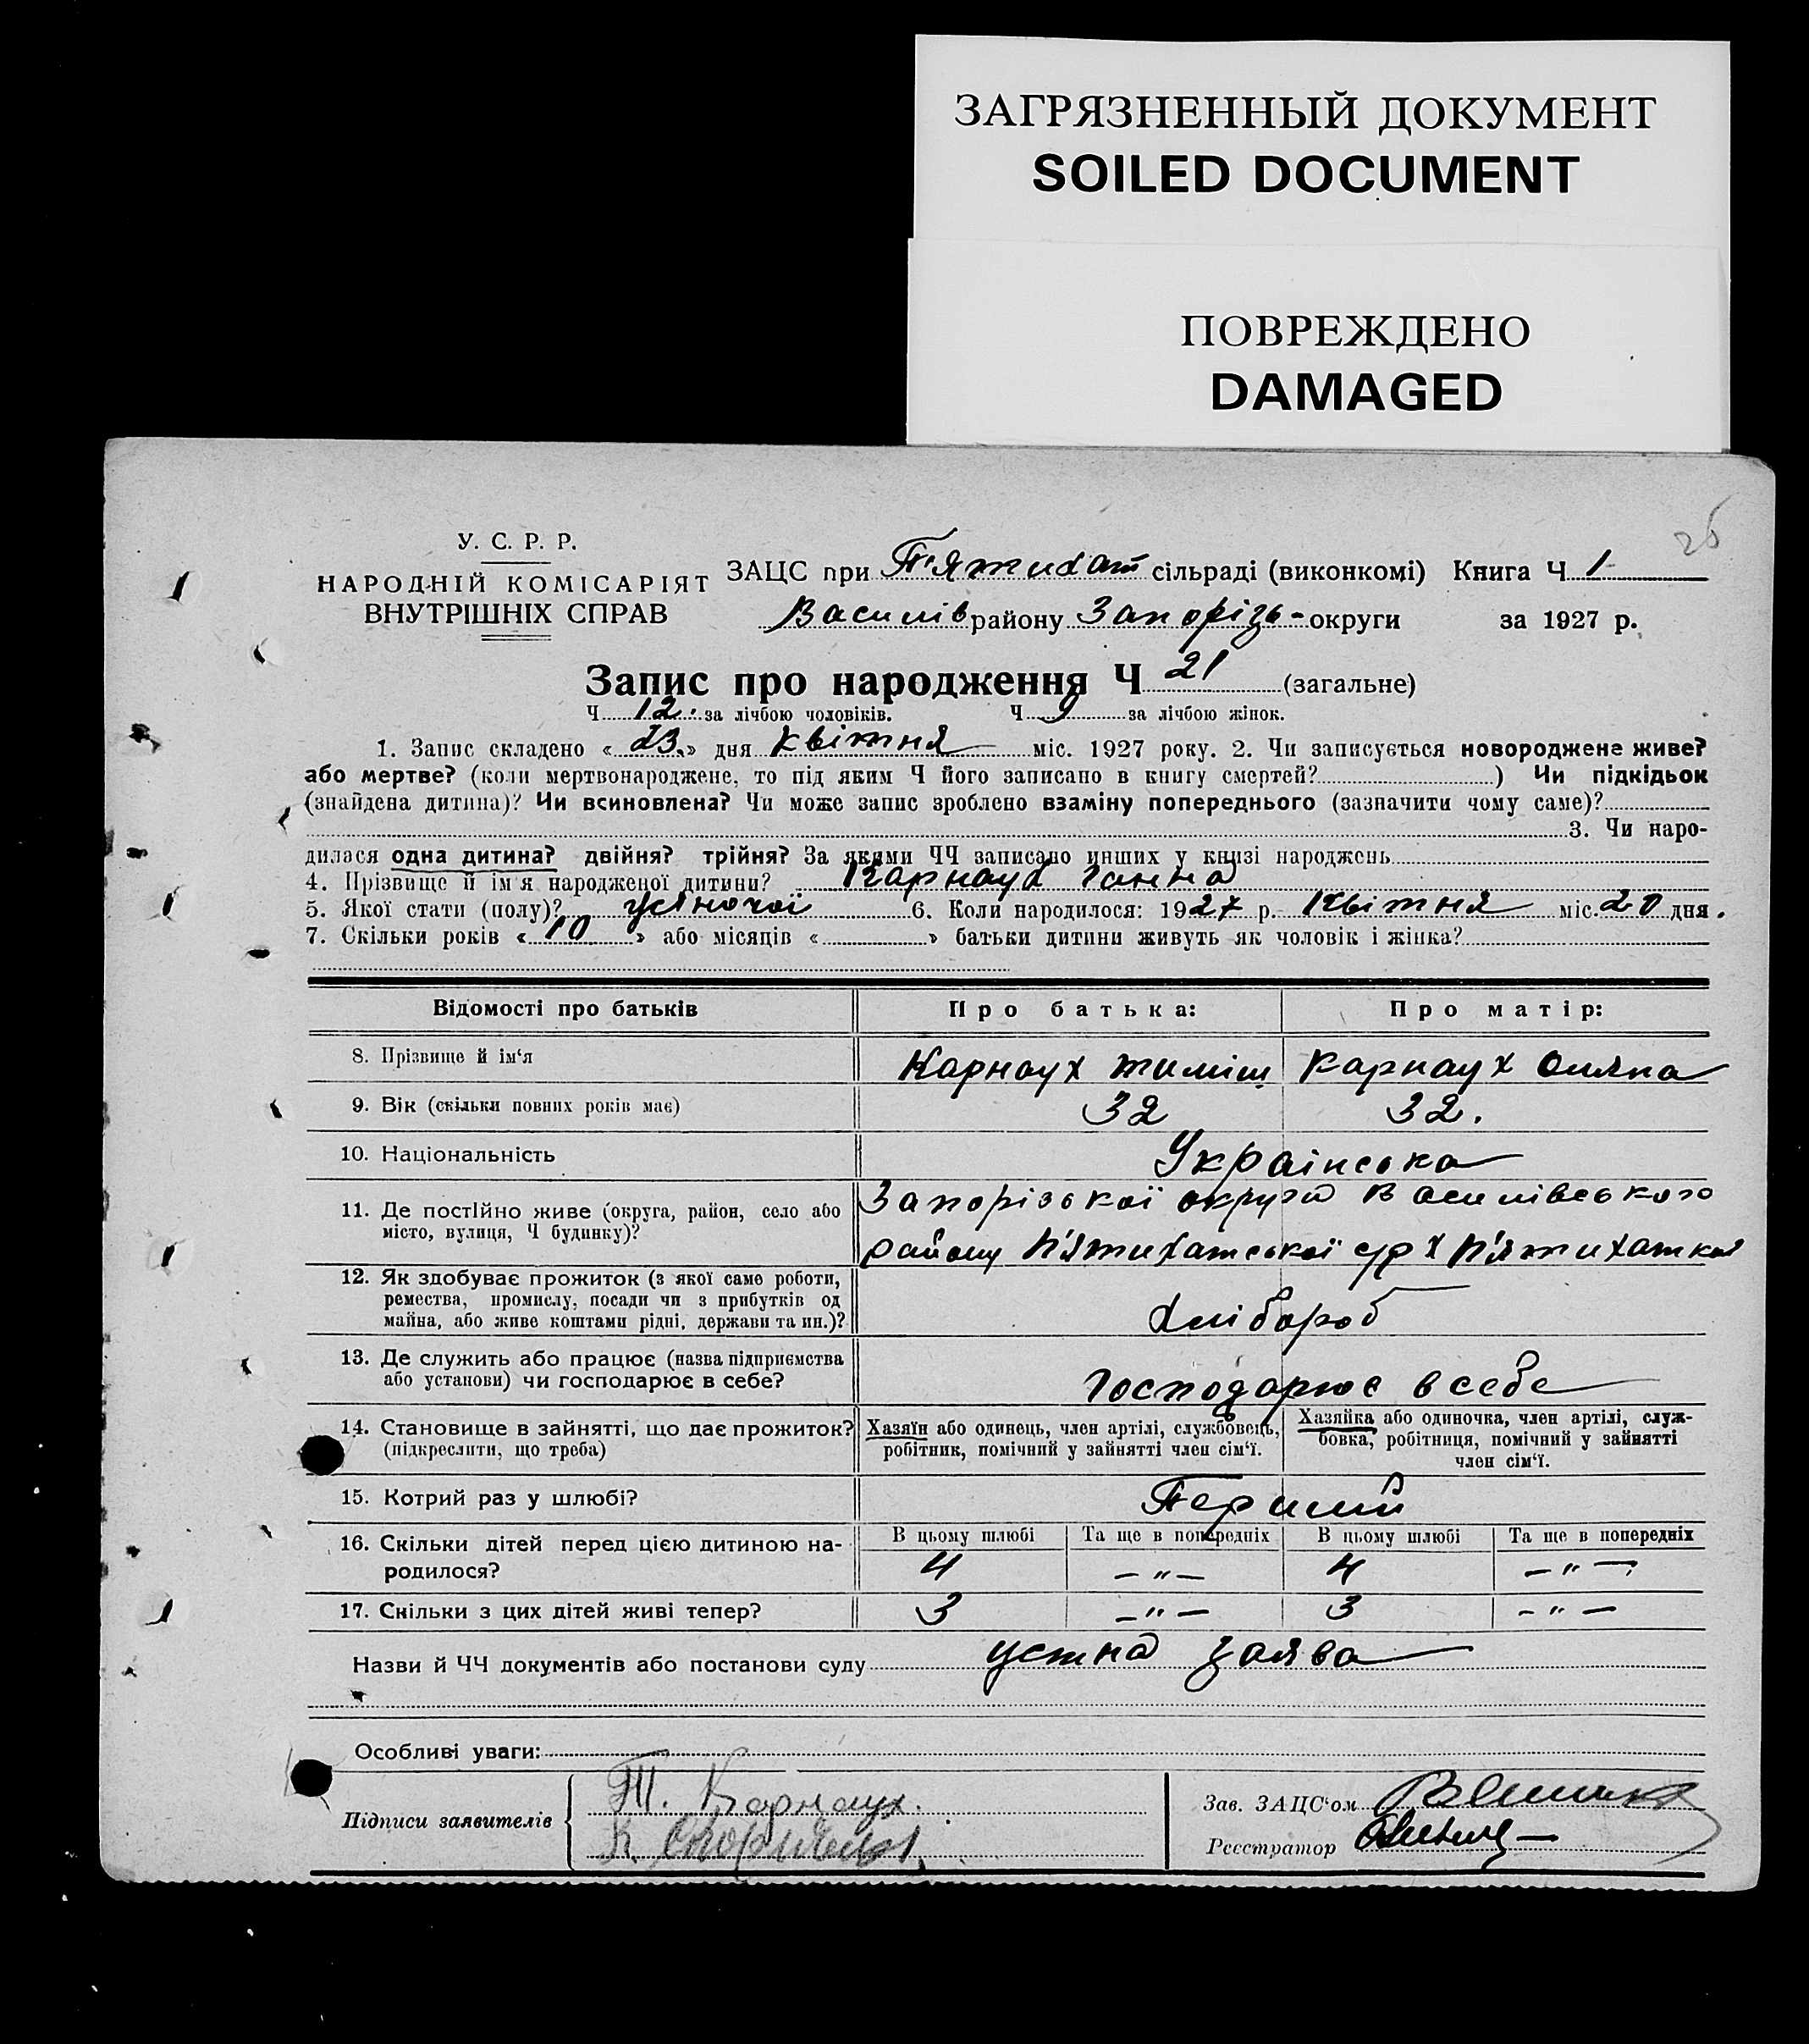 ЗАГРЯЗНЕННЫЙ ДОКУМЕНТ
SOILED DOCUMENT
ПОВРЕЖДЕНО
DAMAGED
26
У. С. Р. Р.
НАРОДНІЙ КОМІСАРІЯТ
ВНУТРІШНІХ СПРАВ
ЗАЦС при П'ятихат сільраді (виконкомі) Книга Ч 1
Василів району Запорізь- округи за 1927 р.
Запис про народження Ч 21 (загальне)
Ч 12. за лічбою чоловіків. Ч 9 за лічбою жінок.
1. Запис складено «23.» дня квітня міс. 1927 року. 2. Чи записується новороджене живе?
або мертве? (коли мертвонароджене, то під яким Ч його записано в книгу смертей?) Чи підкідьок
(знайдена дитина)? Чи всиновлена? Чи може запис зроблено взаміну попереднього (зазначити чому саме)?
3. Чи наро-
дилася одна дитина? двійня? трійня? За якими ЧЧ записано инших у книзі народжень
4. Прізвище й ім'я народженої дитини? Карнаух Ганна
5. Якої стати (полу)? жіночої 6. Коли народилося: 1927 р. Квітня міс. 20 дня.
7. Скільки років «10» або місяців « » батьки дитини живуть як чоловік і жінка?
Відомості про батьків Про батька: Про матір:
8. Прізвище й ім'я Карнаух Тиміш Карнаух Оляна
9. Вік (скільки повних років має) 32 32.
10. Національність Українська
11. Де постійно живе (округа, район, село або місто, вулиця, Ч будинку)? Запорізської округи Василівського
району П'ятихатської с/р х П'ятихатка
12. Як здобуває прожиток (з якої саме роботи,
ремества, промислу, посади чи з прибутків од
майна, або живе коштами рідні, держави та ин.)? Хлібороб
13. Де служить або працює (назва підприємства
або установи) чи господарює в себе? Господарює в себе
14. Становище в зайнятті, що дає прожиток?
(підкреслити, що треба)
Хазяїн або одинець, член артілі, службовець,
робітник, помічний у зайнятті член сім'ї.
Хазяйка або одиночка, член артілі, служ-
бовка, робітниця, помічний у зайнятті
член сім'ї.
15. Котрий раз у шлюбі? Перший
В цьому шлюбі Та ще в попередніх В цьому шлюбі Та ще в попередніх
16. Скільки дітей перед цією дитиною на-
родилося? 4 —"— 4 —"—
17. Скільки з цих дітей живі тепер? 3 —"— 3 —"—
Назви й ЧЧ документів або постанови суду устна заява
Особливі уваги:
Підписи заявителів
Т. Карнаух.
К.
Зав. ЗАЦС'ом
Реєстратор